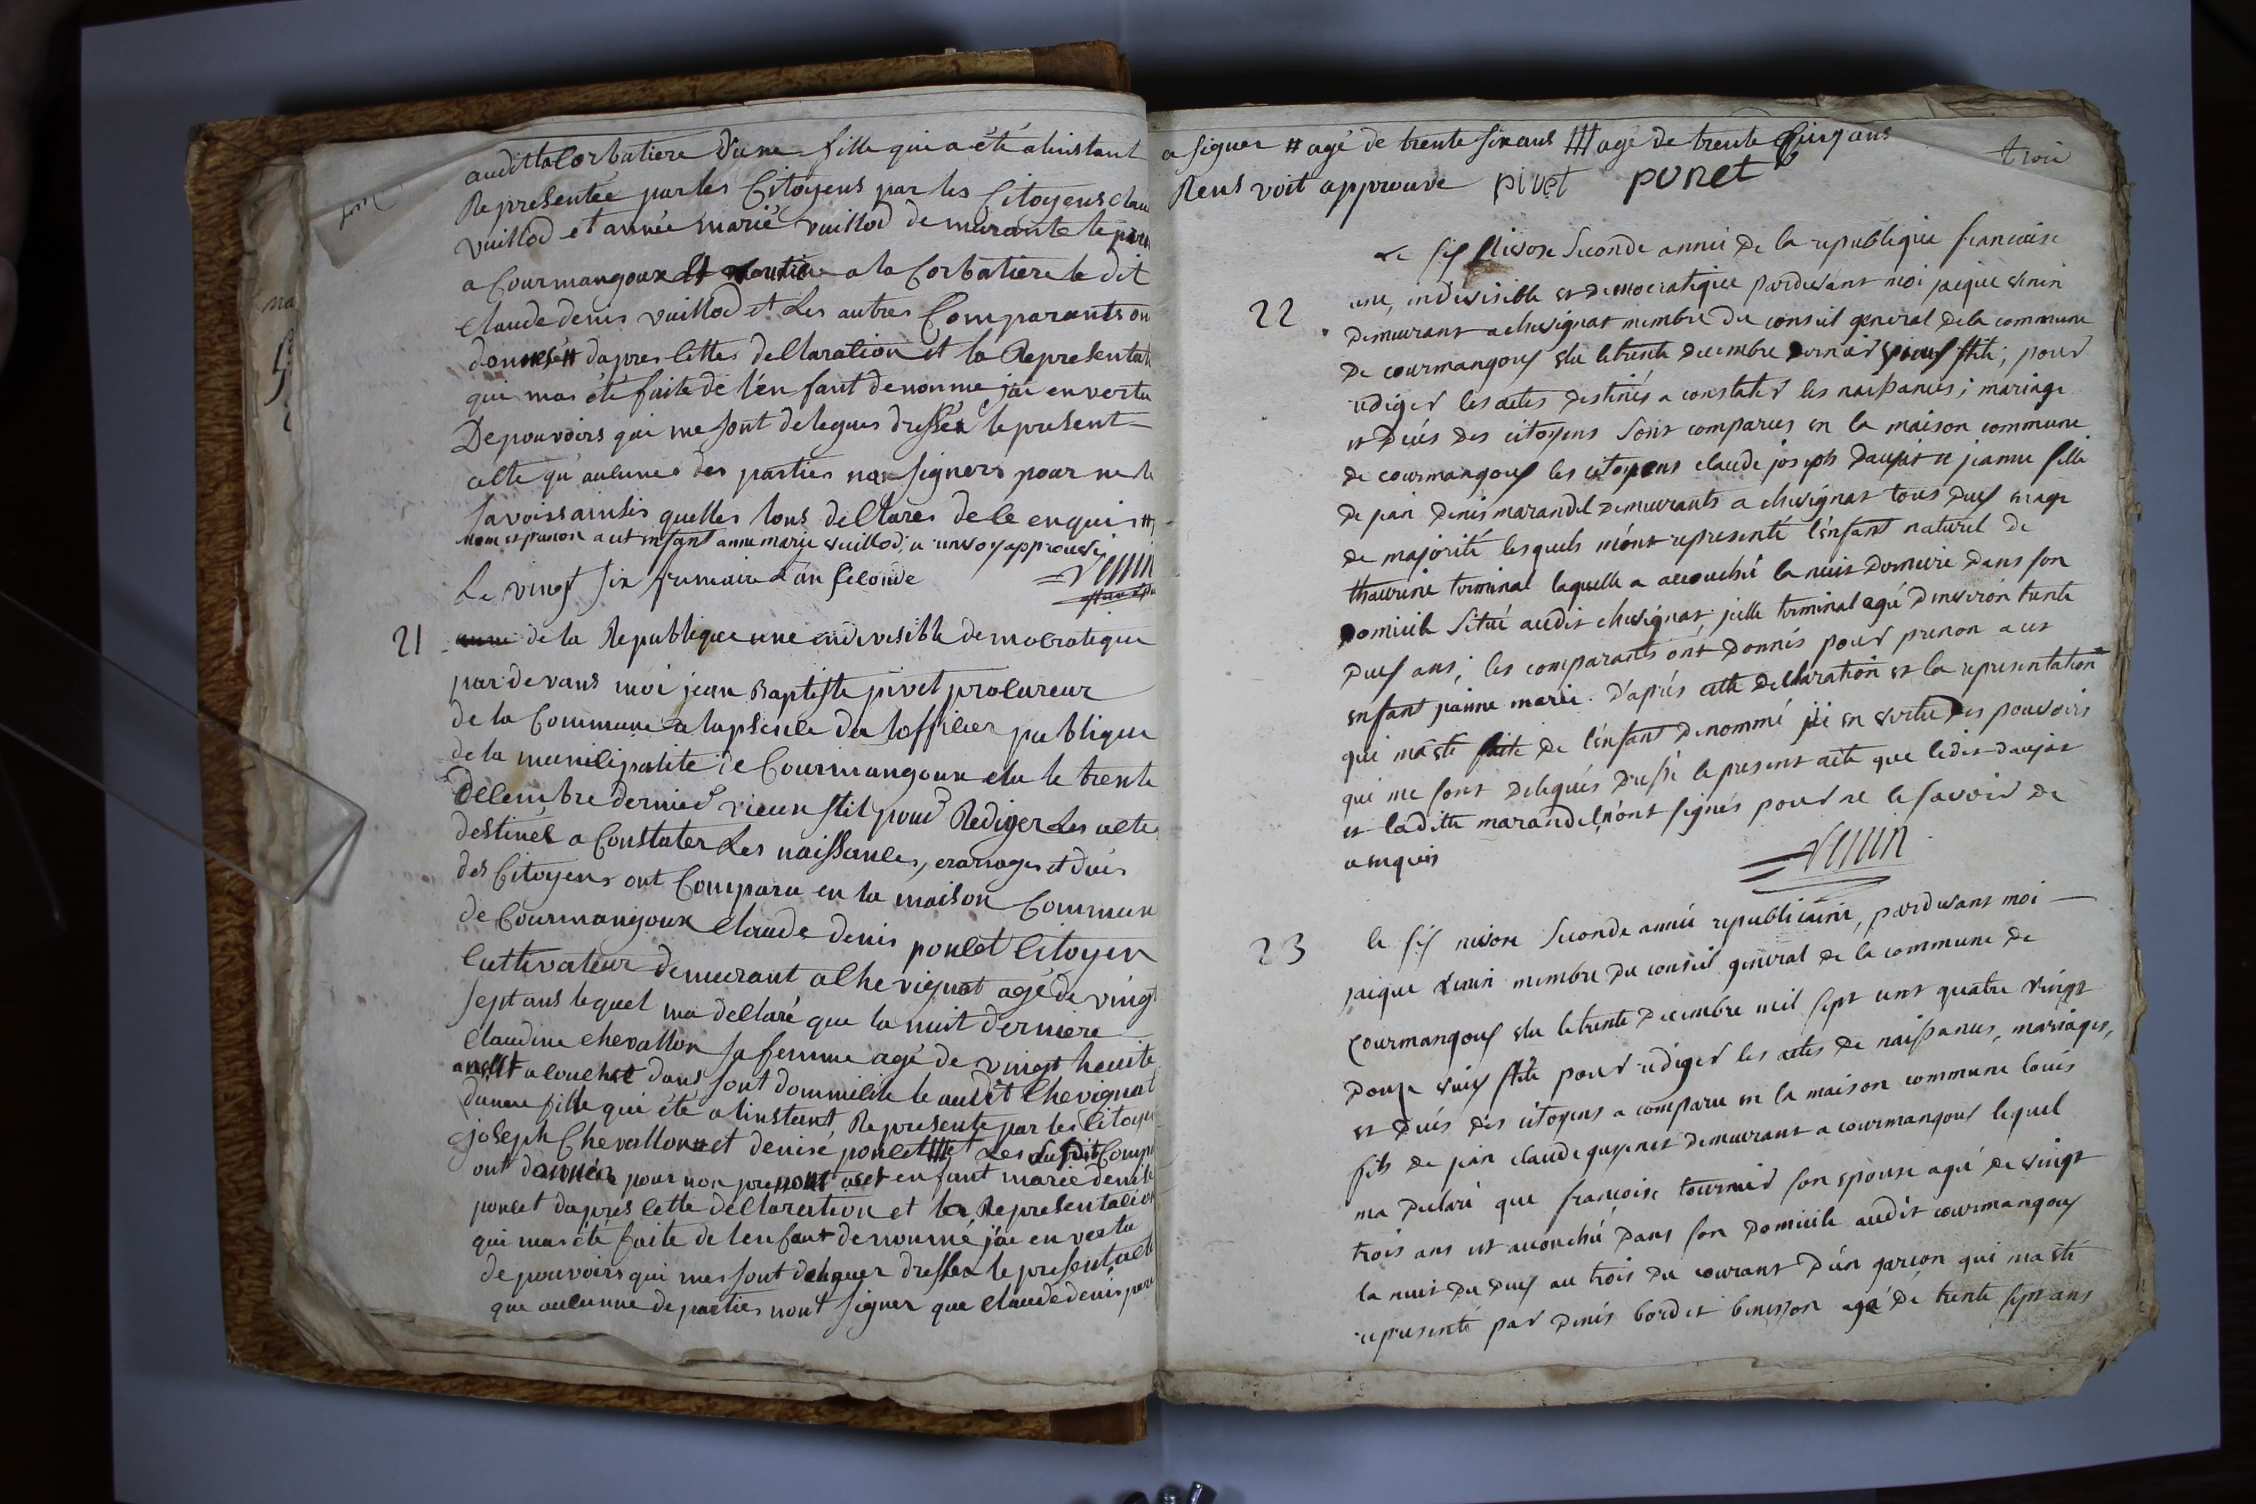 audit la Corbatiere d'une fille qui a été a linstant
Representée par les Citoyens par les Citoyens clau
vuillod et année marie vuillod demurante le
a Courmangoux et a la Corbatiere le dit
Claude denis vuillod et Les autres Comparants on
donnés # dapres cettes declaration et la Representat
qui mas été faite de l'enfant denonme jai en vertu
De pouvoirs qui me sont delegues dressér le present
acte qu'aulcunes des parties non signers pour ne le
savoir ainsis quelles lons declares de le enquis #
nom et prenon a cet enfant anne marie vuillod, renvoy approuvé
Venin
Le vingt six frumaire l'an seconde
21 de la Republique une indivisible democratique
par devans moi jean Baptiste pivet procureur
de la Commune a lapsence du loffilier publique
de la municipalite de Courmangoux elu le trente
Decembre dernier vieux stil pour Rediger Les acte
destinés a Constater Les naissances, mariages et décés
des Citoyens ont Comparu en la maison Commun
de Courmangoux Claude denis poncet Citoyen
Cultivateur demeurant a Chevignat agé de vingt
sept ans lequel ma declaré que la nuit derniere
Claudine chevallon sa femme agé de vingt heuite
ans est acouchée dans sont dommicile le audit Chevignat
d'une fille qui été a linstant Represente par les Citoye
joseph Chevallon # et denise poncet ### et Les susdit Comp
ont donnér pour non prenont a cet enfant marie denise
poncet dapres cette declaration et la Representation
qui mas été faite de lenfant denommé j'ai en vertu
de pouvoirs qui mes sont deleguer dresser le present acte
que aucunne de parties nont signer que Claude denis pon
a signer # agé de trente six ans ### agé de trente cinq ans
Renvoit approuve pivet ponet
troi
Le six nivose seconde année de la republique francaise
22 une, indivisible et democratique pardevant moi jacque venin
demeurant a chevignat membre du conseil general de la commune
de courmangoux elu le trente decembre dernier vieux stile; pour
rediger les actes destinés a constater les naissances; mariage
et decés des citoyens sont comparus en la maison commune
de courmangoux les citoyens claude joseph daujat et jeanne fille
de jean denis marandel demeurants a chevignat tous deux en age
de majorité lesquels m'ont representé l'enfant naturel de
thaurine terminal laquelle a accouché la nuit derniere dans son
domicile situé audit chevignat, jcelle terminal agé d'environ trente
deux ans; les comparants ont donnés pour prenon a cet
enfant jeanne marie. D'aprés cette declaration et la representation
qui m'a été faite de l'enfant denommé jai en vertu des pouvoirs
qui me sont delegués dressé le present acte que ledit daujat
et laditte marandel n'ont signés pour ne le savoir de
ce enquis
Venin
23 le six nivose seconde année republicaine, pardevant moi
jacque venin membre du conseil general de la commune de
courmangoux elu le trente decembre mil sept cent quatre vingt
douze vieux stile pour rediger les actes de naissances, mariages,
et decés des citoyens a comparu en la maison commune louis
fils de jean claude guyenet demeurant a courmangoux lequel
ma declaré que francoise tournier son epouse agé de vingt
trois ans est accouché dans son domicile audit courmangoux
la nuit du deux au trois du courant d'un garcon qui ma été
representé par denis bordet benisson agé de trente sept ans